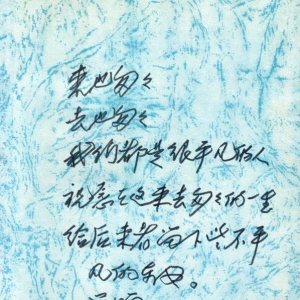 来也匆々
去也匆々
我们都是很平凡的人
祝愿在这来去匆々的一生
给后来者留下些不平
凡的东西。